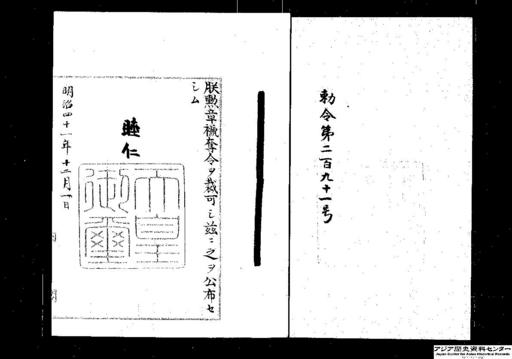 勅令第二百九十一号
朕勲章褫奪令ヲ裁可シ茲ニ之ヲ公布セ
シム
睦仁
天皇御璽
明治四十一年十二月一日
アジア歴史資料センター
Japan Center for Asian Historical Records